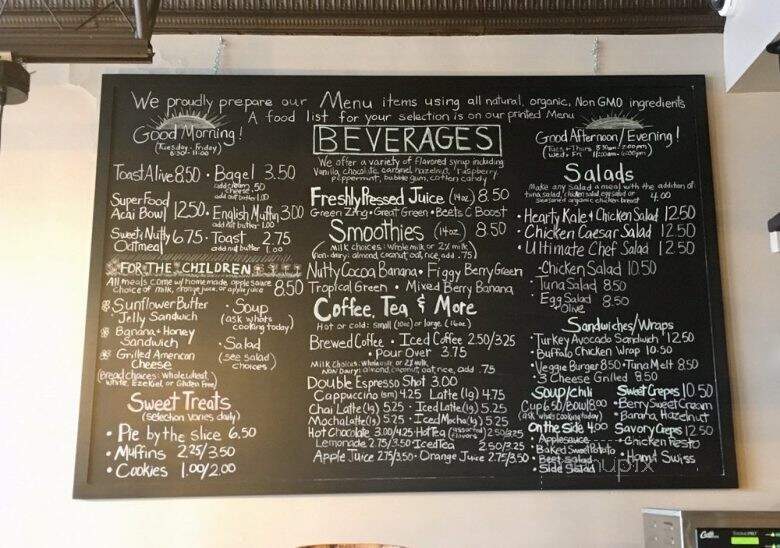 We proudly prepare our Menu items using all natural, organic, Non GMO ingredients
A food list for your selection is on our printed Menu
Good Morning!
(Tuesday - Friday)
8:30 - 11:00
Toast Alive 8.50 • Bagel 3.50
add cream cheese .50
add nut butter 1.00
Super Food Acai Bowl 12.50 • English Muffin 3.00
add nut butter 1.00
Sweet & Nutty Oatmeal 6.75 • Toast 2.75
add nut butter 1.00
FOR THE CHILDREN
All meals come w/ homemade applesauce
choice of milk, orange juice, or apple juice 8.50
Sunflower Butter
Jelly Sandwich
Banana + Honey
Sandwich
Grilled American
Cheese
(Bread choices: whole wheat,
white, Ezekiel, or Gluten Free)
• Soup
(ask what's
cooking today)
• Salad
(see salad
choices)
Sweet Treats
(selection varies daily)
• Pie by the slice 6.50
• Muffins 2.25/3.50
• Cookies 1.00/2.00
BEVERAGES
We offer a variety of flavored syrup including
Vanilla, chocolate, caramel, hazelnut, raspberry
peppermint, bubble gum, cotton candy
Freshly Pressed Juice (14oz) 8.50
Green Zing • Great Green • Beets C Boost
Smoothies (14oz) 8.50
Milk choices: whole milk or 2% milk
(non-dairy: almond, coconut, oat, rice, add .75)
Nutty Cocoa Banana • Figgy Berry Green
Tropical Green • Mixed Berry Banana
Coffee, Tea & More
Hot or cold: small (10oz) or large (16oz)
Brewed Coffee • Iced Coffee 2.50/3.25
• Pour Over 3.75
Milk Choices: whole milk or 2%
Non Dairy: almond, coconut, oat, rice, add .75
Double Espresso Shot 3.00
Cappuccino (sm) 4.25 Latte (lg) 4.75
Chai Latte (lg) 5.25 • Iced Latte (lg) 5.25
Mocha Latte (lg) 5.25 • Iced Mocha (lg) 5.25
Hot Chocolate 3.00/4.25 Hot Tea (assorted flavors) 2.50/3.25
Lemonade 2.75/3.50 Iced Tea 2.50/3.25
Apple Juice 2.75/3.50 • Orange Juice 2.75/3.50
Good Afternoon/Evening!
Salads
Make any salad a meal with the addition of:
tuna salad, chicken salad, egg salad or
seasoned organic chicken breast 4.00
• Hearty Kale + Chicken Salad 12.50
• Chicken Caesar Salad 12.50
• Ultimate Chef Salad 12.50
-Chicken Salad 10.50
-Tuna Salad 8.50
-Egg Salad 8.50
+ Olive
Sandwiches/Wraps
• Turkey Avocado Sandwich 12.50
• Buffalo Chicken Wrap 10.50
• Veggie Burger 8.50 • Tuna Melt 8.50
• 3 Cheese Grilled 8.50
Soup/Chili
Cup 6.50/Bowl 8.00
(ask what's cooking today)
On the Side 4.00
• Applesauce
• Baked Sweet Potato
• Beet salad
• Side Salad
Sweet Crepes 10.50
• Berry Sweet Cream
• Banana Hazelnut
Savory Crepes 12.50
• Chicken Pesto
• Ham & Swiss